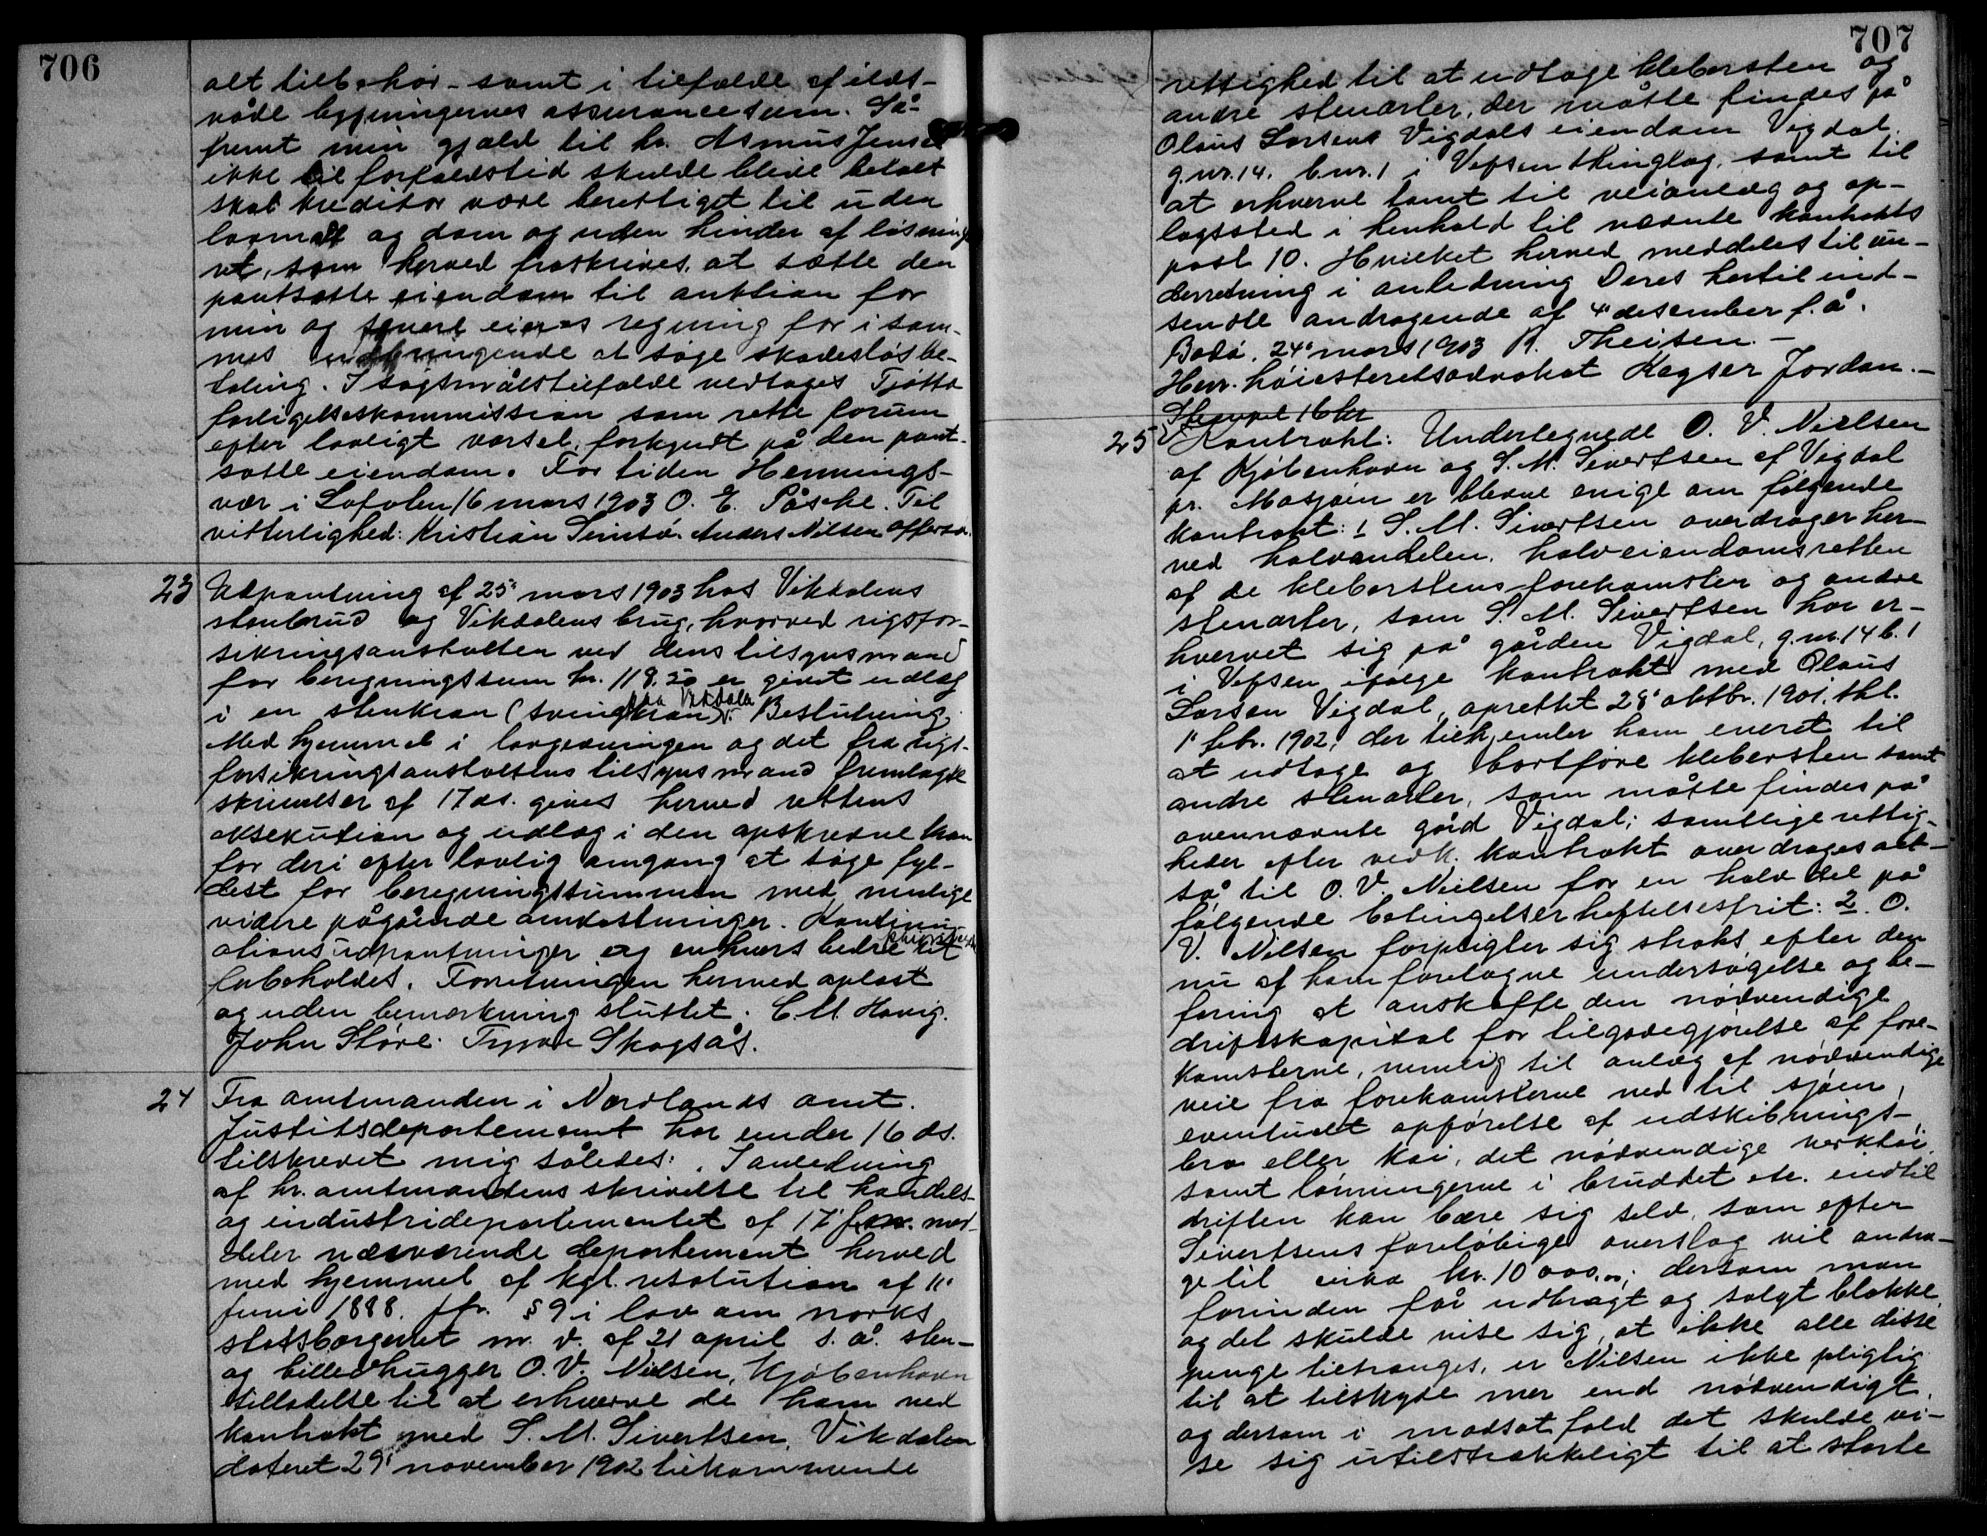 706
alt tilbehør - samt i tilfælde af ilds-
våde bygningernes assurancesum. Så-
fremt min gjæld til hr. Asmus Jensen
ikke til forfaldstid skulde blive betalt
skal kreditor være berettiget til uden
lovmål og dom og uden hinder af løsnings
ret, som herved fraskrives, at sætte den
pantsatte eiendom til auktion for
min og senere eieres regning for i sam-
mes udbringende at søge skadesløs be-
taling. I søgsmålstilfælde vedtages Tjøtta
forligelseskommission som rette forum
efter lovligt varsel, forkyndt på den pant-
satte eiendom. For tiden Hennings-
vær i Lofoten 16 mars 1903 O. E. Påske. Til
vitterlighed: Kristian Anders Nilsen
23 Udpantning af 25' mars 1903 hos Vikdalens
stenbrud og Vikdalens brug, hvorved rigsfor-
sikringsanstalten ved dens tilsynsmand
for beregningssum kr. 119.50 er givet udlæg
paa Vikdalen
i en stenkran (svingkran) Beslutning.
Med hjemmel i lovgivningen og det fra rigs-
forsikringsanstaltens tilsynsmand fremlagte
skrivelser af 17 ds. gives herved rettens
eksekution og udlæg i den opskrevne kran
for deri efter lovlig omgang at søge fyl-
dest for beregningssummen med mulige
videre pågående omkostninger. Kontinu-
ationsudpantninger og enhvers bedre ret
forbeholdes. Forretningen hermed oplæst
og uden bemærkning sluttet. C. M. Havig.
John Støre. Trygve Skogsås.
24 Fra amtmanden i Nordlands amt.
Justitsdepartement har under 16 ds.
tilskrevet mig således: "I anledning
af hr. amtmandens skrivelse til handels-
og industridepartementet af 17' med-
deler nærværende departement herved
med hjemmel af kgl. resolution af 11'
juni 1888. jfr. § 9 i lov om norks
statsborgerret m. v. af 21 april s. å. sten-
og billedhugger O. V. Nielsen, Kjøbenhavn
tilladelse til at erhverve de ham ved
kontrakt med S. M. Sivertsen, Vikdalen
dateret 29' november 1902 tilkommende
707
rettighed til at udtage klebersten og
andre stenarter, der måtte findes på
Olaus Larsens Vigdals eiendom Vigdal,
g.nr. 14. b.nr. 1 i Vefsen thinglag, samt til
at erhverve tomt til veianlæg og op-
lagssted i henhold til nævnte kontrakts
post 10. Hvilket herved meddeles til un-
derretning i anledning Deres hertil ind-
sendte andragende af 4' desember f. å.
Bodø, 24' mars 1903 R. Theisen. -
Herr. høiesteretsadvokat Kayser Jordan. -
Stempel 16 kr
25 Kontrakt: Undertegnede O. V. Nielsen
af Kjøbenhavn og S. M. Sivertsen af Vigdal
pr. Mosjøen er blevne enige om følgende
kontrakt: 1 S. M. Sivertsen overdrager her-
ved halvandelen, halveiendomsretten
af de kleberstens forekomster og andre
stenarter, som S. M. Sivertsen har er-
hvervet sig på gården Vigdal, g.nr. 14 b. 1
i Vefsen ifølge kontrakt med Olaus
Larsen Vigdal, oprettet 28' oktbr. 1901. thl.
1' febr. 1902, der tilhjemler ham eneret til
at udtage og bortføre klebersten samt
andre stenarter, som måtte findes på
ovennævnte gård Vigdal; samtlige rettig-
heder efter vedk. kontrakt overdrages alt-
så til O. V. Nielsen for en halv del på
følgende betingelser heftelsesfrit: 2. O.
V. Nilsen forpligter sig straks efter den
nu af ham foretagne undersøgelse og be-
faring at anskaffe den nødvendige
driftskapital for tilgodegjørelse af fore-
komsterne, nemlig til anlæg af nødvendige
veie fra forekomsterne ned til sjøen,
eventuelt opførelse af udskibnings-
bro eller kai, det nødvendige værktøi
samt lønningerne i bruddet etc. indtil
driften kan bære sig selv, som efter
Sivertsens foreløbige overslag vil andra-
ge til cirka kr. 10 000.00; dersom man
forinden får udbragt og solgt blokke
og det skulde vise sig, at ikke alle disse
penge tiltrænges, er Nilsen ikke pligtig
til at tilskyde mer end nødvendigt,
og dersom i modsat fald det skulde vi-
se sig utilstrækkeligt til at starte